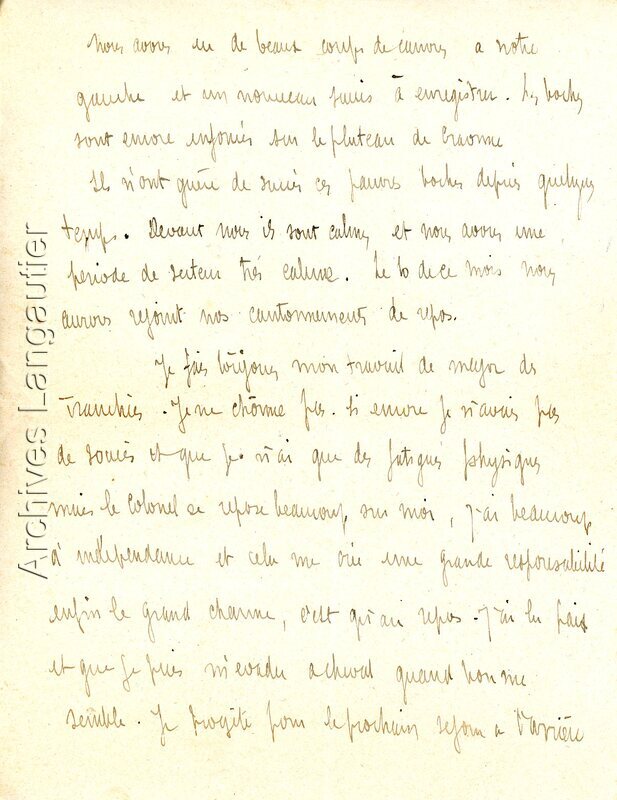 Nous avons eu de beaux coups de canons a notre
gauche et un nouveau succès à enregistrer. Les boches
sont encore enfoncés sur le plateau de Craonne
Ils n'ont guère de succès ces pauvres boches depuis quelques
temps. Devant nous ils sont calmes et nous avons une
période de secteur très calme. Le 10 de ce mois nous
aurons rejoint nos cantonnements de repos.
Je fais toujours mon travail de major de
Tranchées. Je ne chôme pas. Si encore je n'avais pas
de soucis et que je n'ai que des fatigues physiques
mais le Colonel se repose beaucoup sur moi, j'ai beaucoup
d'indépendance et cela me crée une grande responsabilité
enfin le grand charme, c'est qu'au repos j'ai la paix
et que je puis m'evader a cheval quand bon me
semble. Je projète pour le prochain sejour a l'arrière
Archives Langautier